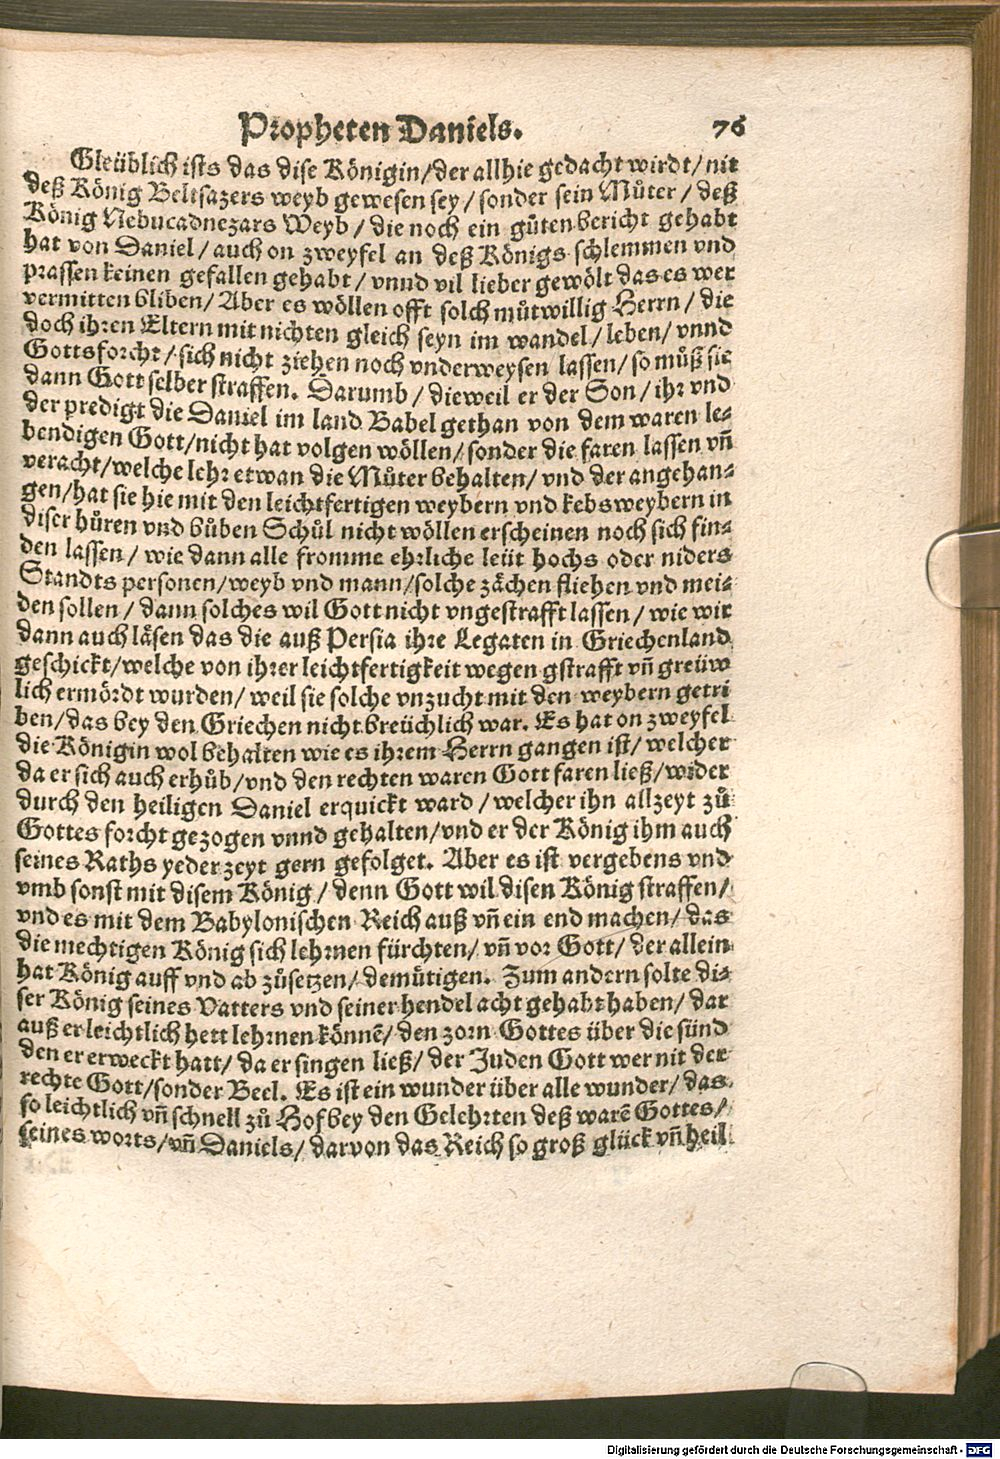 Propheten Daniels. 76
Gleüblich ists das dise Königin/der allhie gedacht wirdt/nit
deß König Beltsazers weyb gewesen sey/sonder sein Můter/deß
König Nebucadnezars Weyb/die noch ein gůten bericht gehabt
hat von Daniel/auch on zweyfel an deß Königs schlemmen vnd
prassen keinen gefallen gehabt/vnnd vil lieber gewölt das es wer
vermitten bliben/Aber es wöllen offt solch můtwillig Herrn/die
doch ihren Eltern mit nichten gleich seyn im wandel/leben/vnnd
Gottsforcht/sich nicht ziehen noch vnderweysen lassen/so můß sie
dann Gott selber straffen. Darumb/dieweil er der Son/ihr vnd
der predigt die Daniel im land Babel gethan von dem waren le⸗
bendigen Gott/nicht hat volgen wöllen/sonder die faren lassen vñ
veracht/welche lehr etwan die Můter behalten/vnd der angehan⸗
gen/hat sie hie mit den leichtfertigen weybern vnd kebsweybern in
diser hůren vnd bůben Schůl nicht wöllen erscheinen noch sich fin⸗
den lassen/wie dann alle fromme ehrliche leüt hochs oder niders
Standts personen/weyb vnd mann/solche zächen fliehen vnd mei⸗
den sollen/dann solches wil Gott nicht vngestrafft lassen/wie wir
dann auch läsen das die auß Persia ihre Legaten in Griechenland
geschickt/welche von ihrer leichtfertigkeit wegen gstrafft vñ greüw
lich ermördt wurden/weil sie solche vnzucht mit den weybern getri
ben/das bey den Griechen nicht breüchlich war. Es hat on zweyfel
die Königin wol behalten wie es ihrem Herrn gangen ist/welcher
da er sich auch erhůb/vnd den rechten waren Gott faren ließ/wider
durch den heiligen Daniel erquickt ward/welcher ihn allzeyt zů
Gottes forcht gezogen vnnd gehalten/vnd er der König ihm auch
seines Raths yeder zeyt gern gefolget. Aber es ist vergebens vnd
vmb sonst mit disem König/denn Gott wil disen König straffen/
vnd es mit dem Babylonischen Reich auß vñ ein end machen/das
die mechtigen König sich lehrnen fürchten/vñ vor Gott/der allein
hat König auff vnd ab zůsetzen/demütigen. Zum andern solte di⸗
ser König seines Vatters vnd seiner hendel acht gehabt haben/dar
auß er leichtlich hett lehrnen könnẽ/den zorn Gottes über die sünd
den er erweckt hatt/da er singen ließ/der Juden Gott wer nit der
rechte Gott/sonder Beel. Es ist ein wunder über alle wunder/das
so leichtlich vñ schnell zů Hof bey den Gelehrten deß warẽ Gottes/
seines worts/vñ Daniels/darvon das Reich so groß glück vñ heil
Digitalisierung gefördert durch die Deutsche Forschungsgemeinschaft - DFG